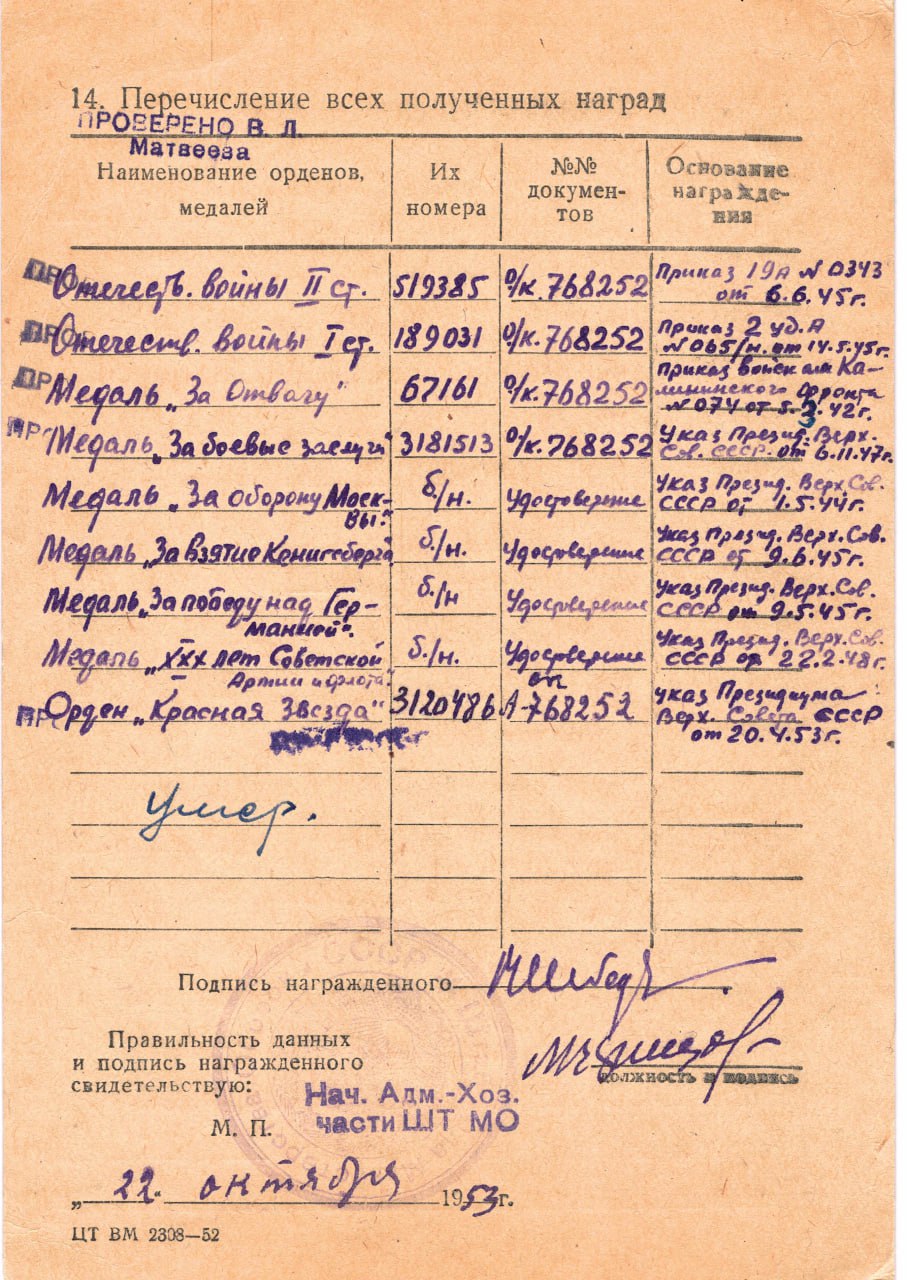 14. Перечисление всех полученных наград
ПРОВЕРЕНО В. Л.
Матвеева
Наименование орденов, медалей
Их номера
№№ документов
Основание награждения
Отечеств. войны II ст. 519385 о/к. 768252 Приказ 19А N 0343
от 6.6.45г.
Отечеств. войны I ст. 189031 о/к. 768252 Приказ 2 уд. А
N 065/н. от 14.5.45г.
Медаль „За Отвагу" 67161 о/к. 768252 Приказ войскам Ка-
лининского Фронта
N 074 от 5.3.42г.
Медаль „За боевые заслуги" 3181513 о/к. 768252 Указ Презид. Верх.
Сов. СССР. от 6.11.47г.
Медаль „За оборону Моск-
вы." б/н. Удостоверение Указ Презид. Верх Сов.
СССР от 1.5.44г.
Медаль „За взятие Кенигсберга б/н. Удостоверение Указ Презид. Верх. Сов.
СССР от 9.6.45г.
Медаль „За победу над Гер-
манией". б/н Удостоверение Указ Презид. Верх. Сов.
СССР от 9.5.45г.
Медаль „XXX лет Советской
Армии и флота." б/н. Удостоверение Указ Презид. Верх. Сов.
СССР от 22.2.48г.
Орден „Красная Звезда" 3120486 А-768252 Указ Президиума
Верх. Совета СССР
от 20.4.53г.
Умер.
Подпись награжденного
Правильность данных
и подпись награжденного
свидетельствую:
должность и подпись
Нач. Адм.-Хоз.
части ШТ МО
М. П.
„22" октября 1953г.
ЦТ ВМ 2308—52